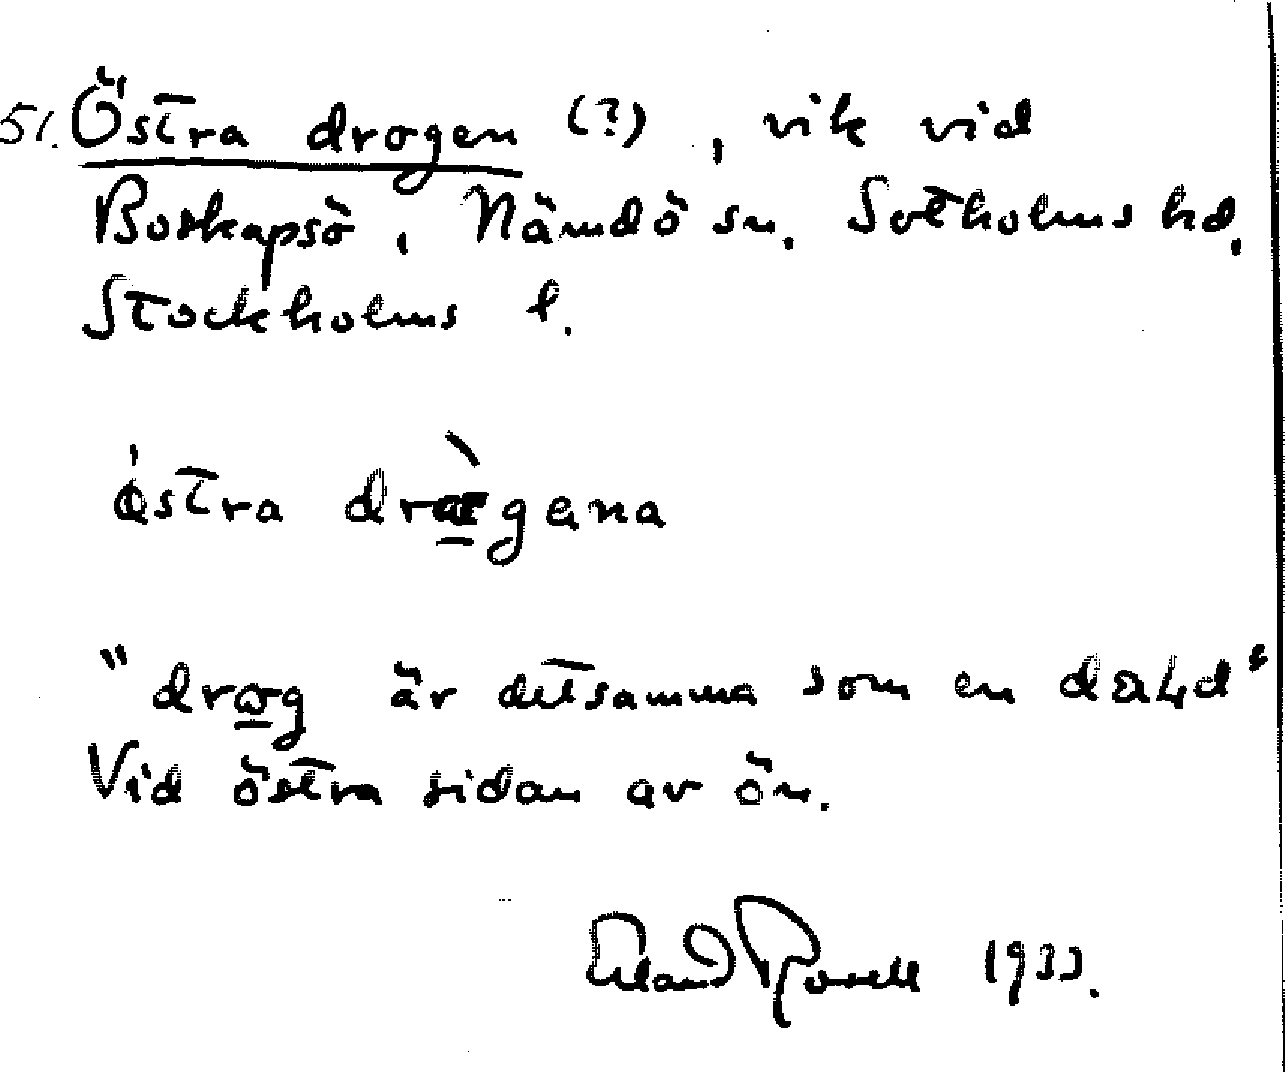 51. Östra drogen (?), vik vid
Boskapsö, Nämdö sn. Sotholms hd,
Stockholms l.
östra drægena
"drog är detsamma som en dald"
Vid östra sidan av ön.
Erland Rosell 1933.